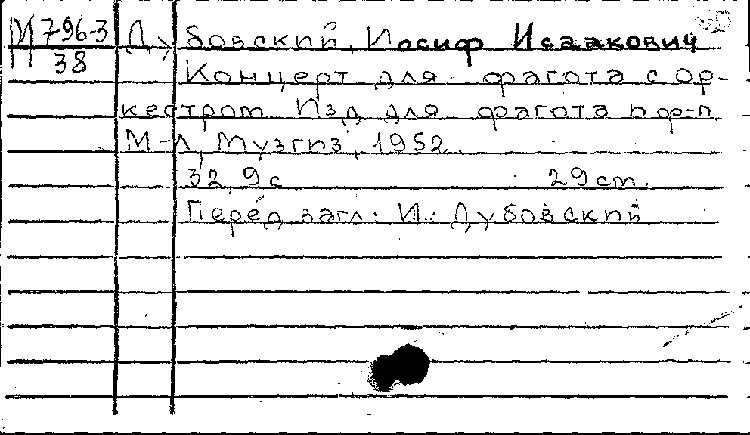 М 796-3
38
Дубовский, Иосиф Исаакович
Концерт для фагота с ор-
кестром. Изд. для фагота и ф-п.
М-Л, Музгиз, 1952.
32, 9 с 29 cm.
Перед загл: И. Дубовский